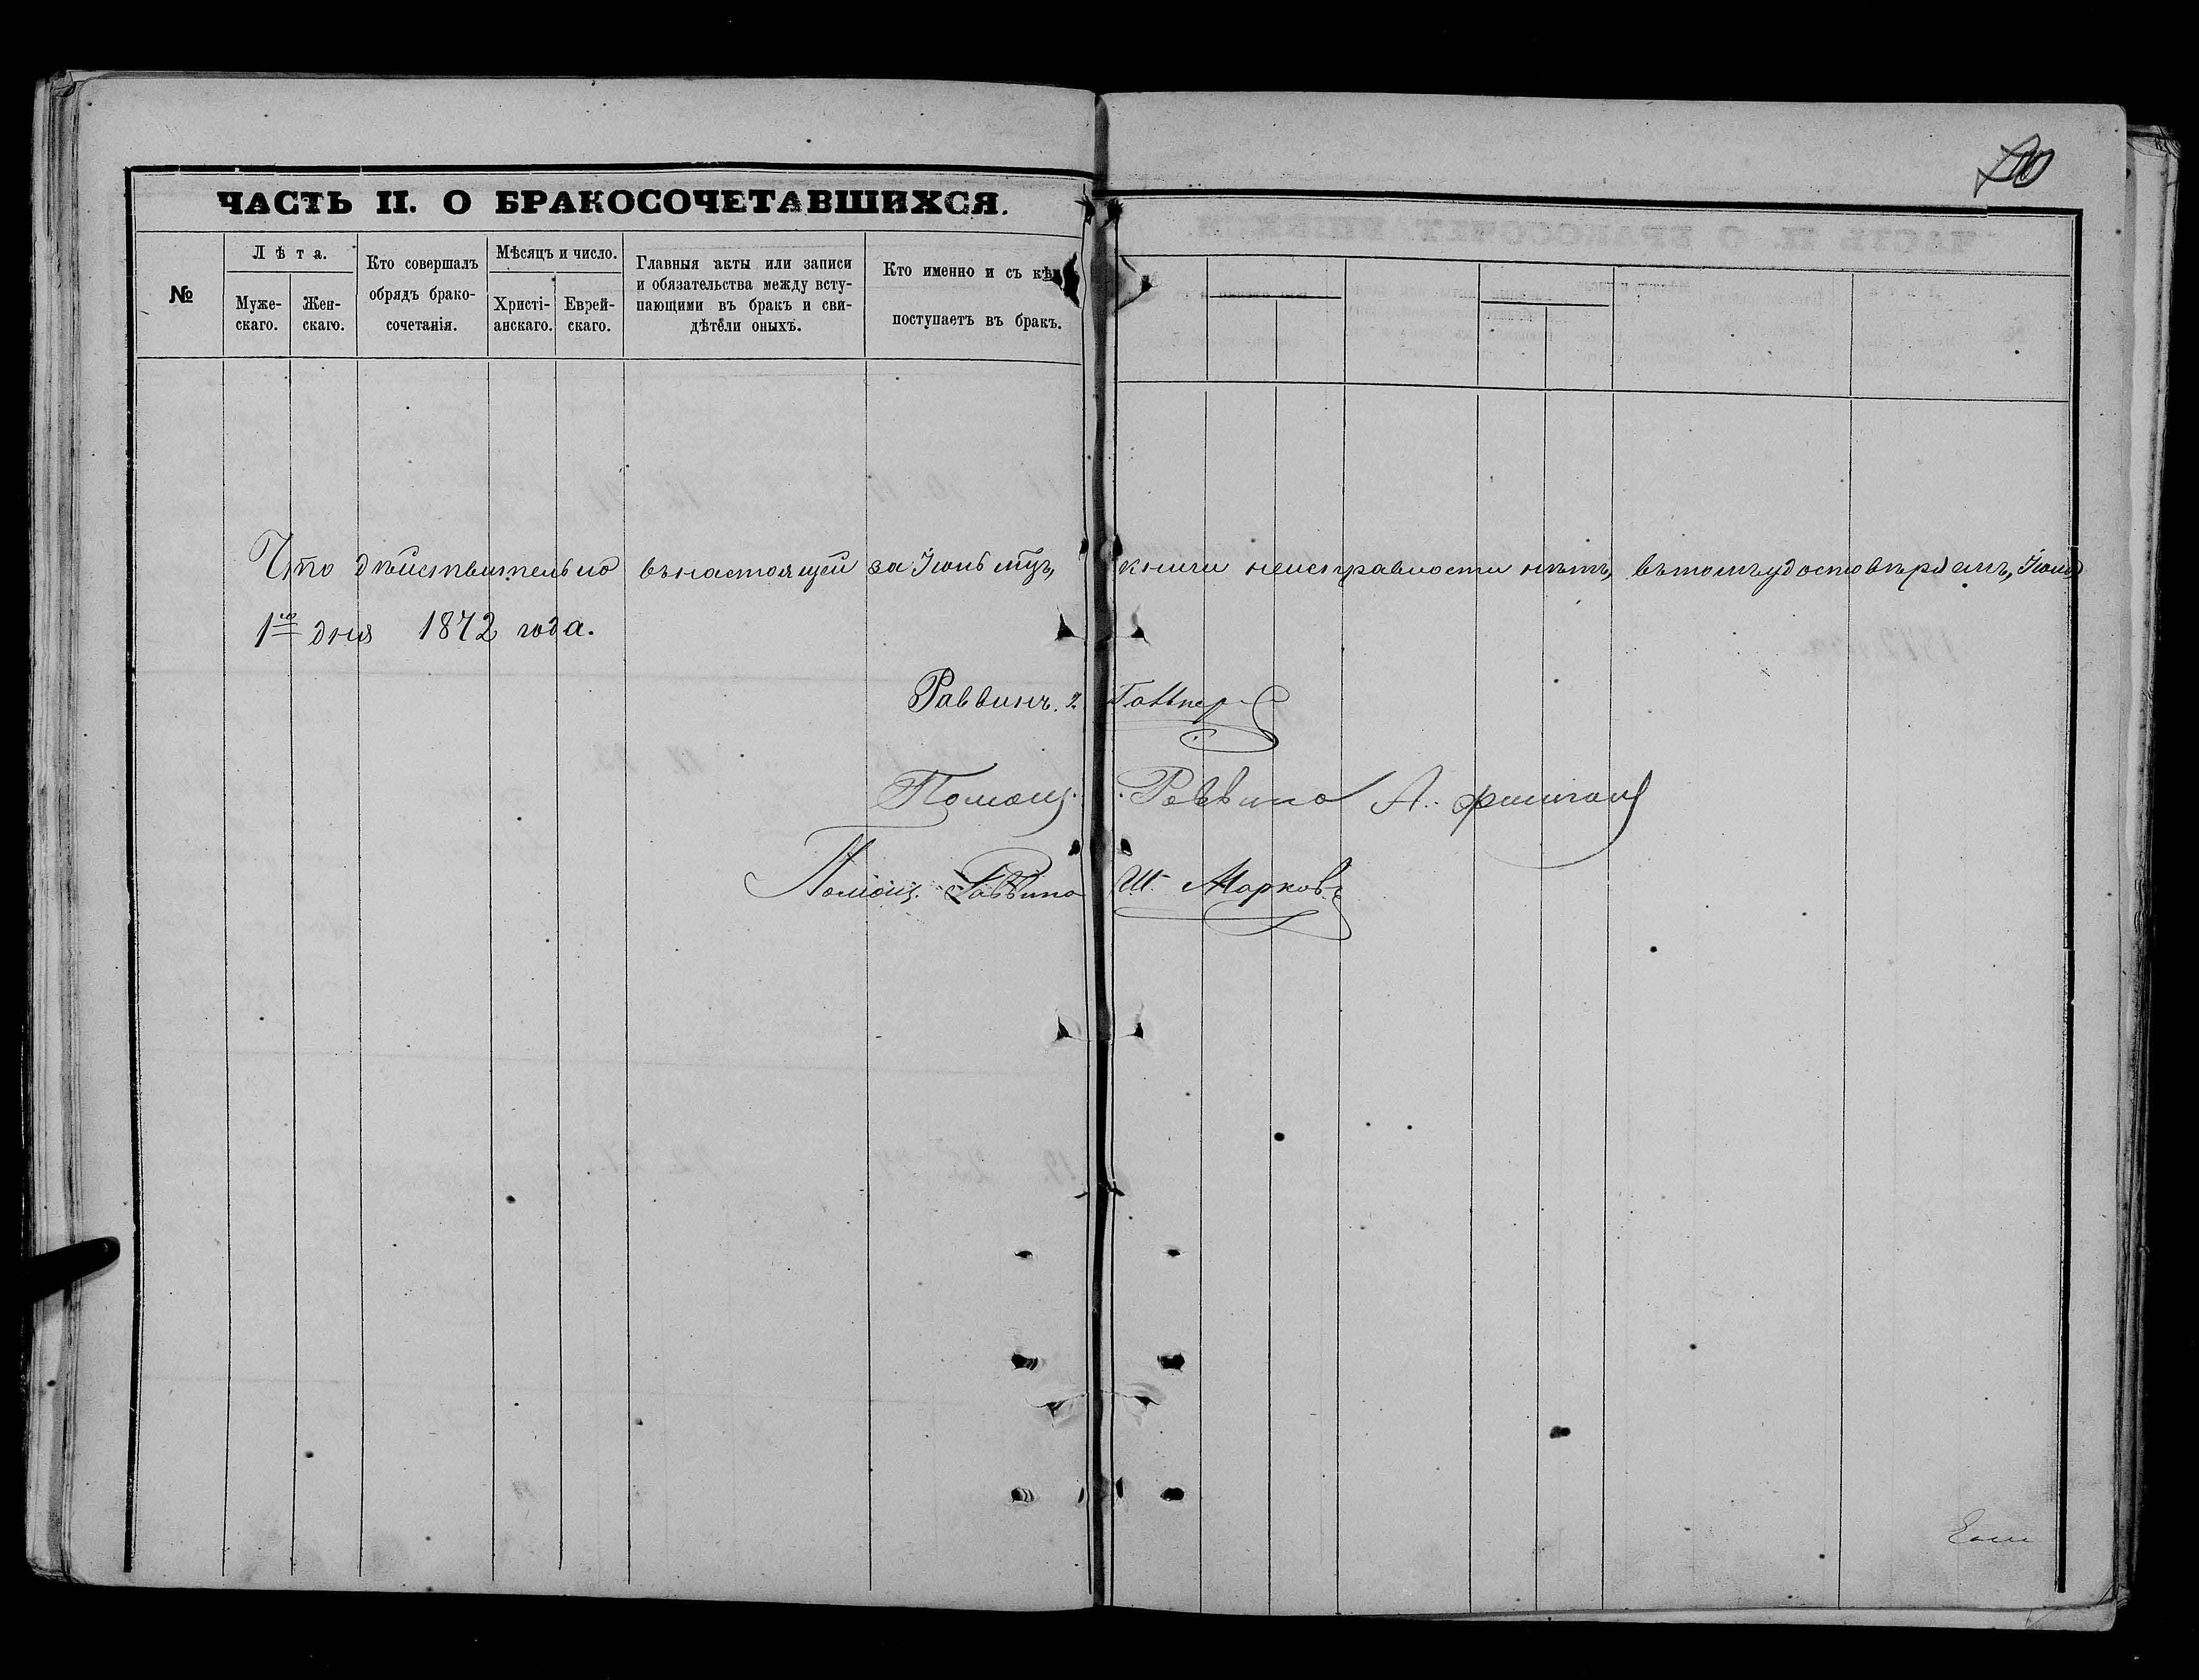 ЧАСТЬ II. О БРАКОСОЧЕТАВШИХСЯ.
№
Лѣта.
Муже-
скаго.
Жен-
скаго.
Кто совершалъ
обрядъ брако-
сочетанія.
Мѣсяцъ и число.
Христі-
анскаго.
Еврей-
скаго.
Главныя акты или записи
и обязательства между всту-
пающими въ бракъ и сви-
дѣтели оныхъ.
Кто именно и съ кѣмъ
поступаетъ въ бракъ.
Что дѣйствительно въ настоящей за Іюнь мцъ, книги неисправности нѣтъ, въ томъ удостовѣряемъ, Іюля
1го дня 1872 года.
Раввинъ
Помощ. Раввина А.
Помощ. Раввина Ш. Марковъ